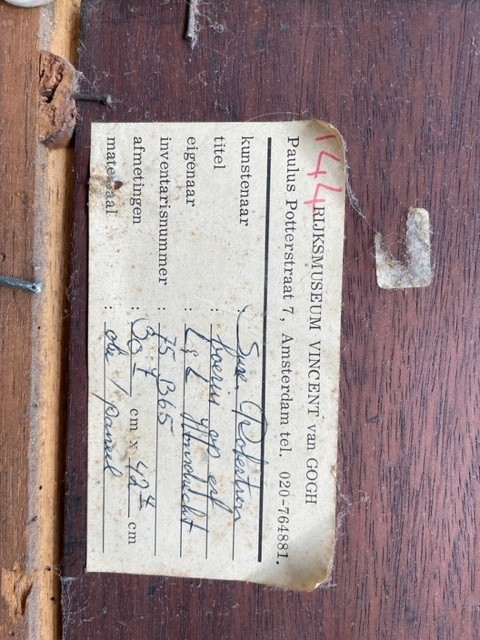 144
RIJKSMUSEUM VINCENT van GOGH
Paulus Potterstraat 7, Amsterdam tel. 020-764881.
kunstenaar : Suze Robertson
titel : boerin op erf
eigenaar :
inventarisnummer : 75 B365
afmetingen : cm x 42 cm
materiaal : olie / paneel